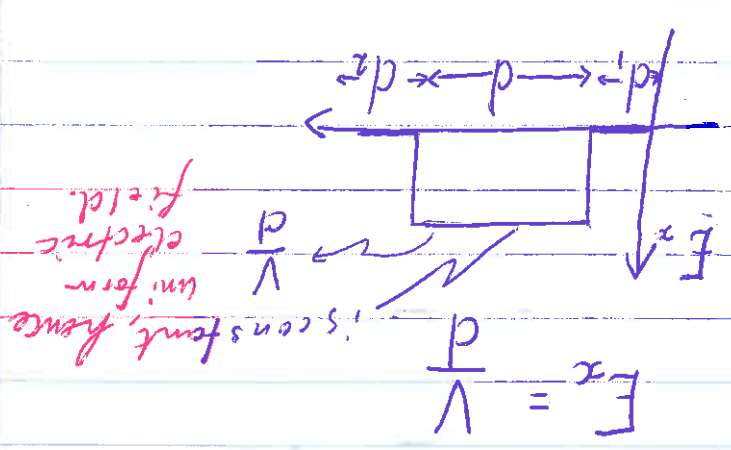 Eₓ = V/d
is constant, hence
uniform
electric
field.
V/d
Eₓ
d₁ d d₂